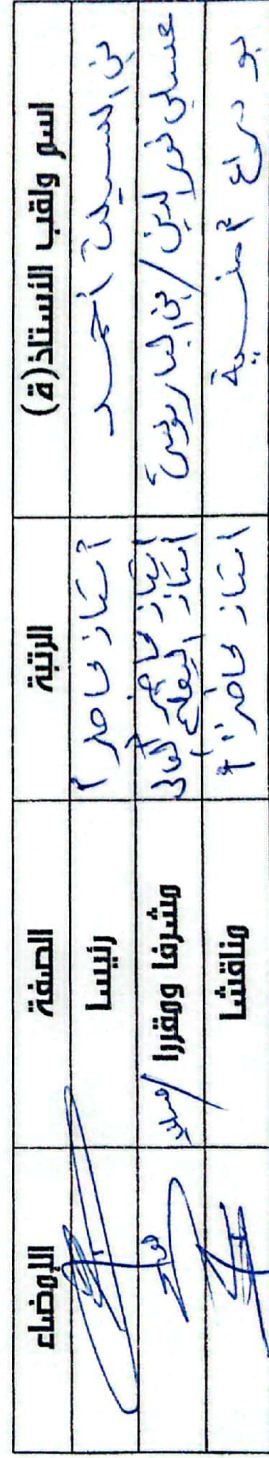 اسم ولقب الأستاذ(ة) الرتبة الصفة الإمضاء
بن السبيك أحمد أستاذ محاضر أ رئيسا
عسلي نور الدين / بن البار أستاذ محاضر أ
أستاذ التعليم العالي مشرفا ومقررا / مساعد
أستاذ محاضر "أ" مناقشا